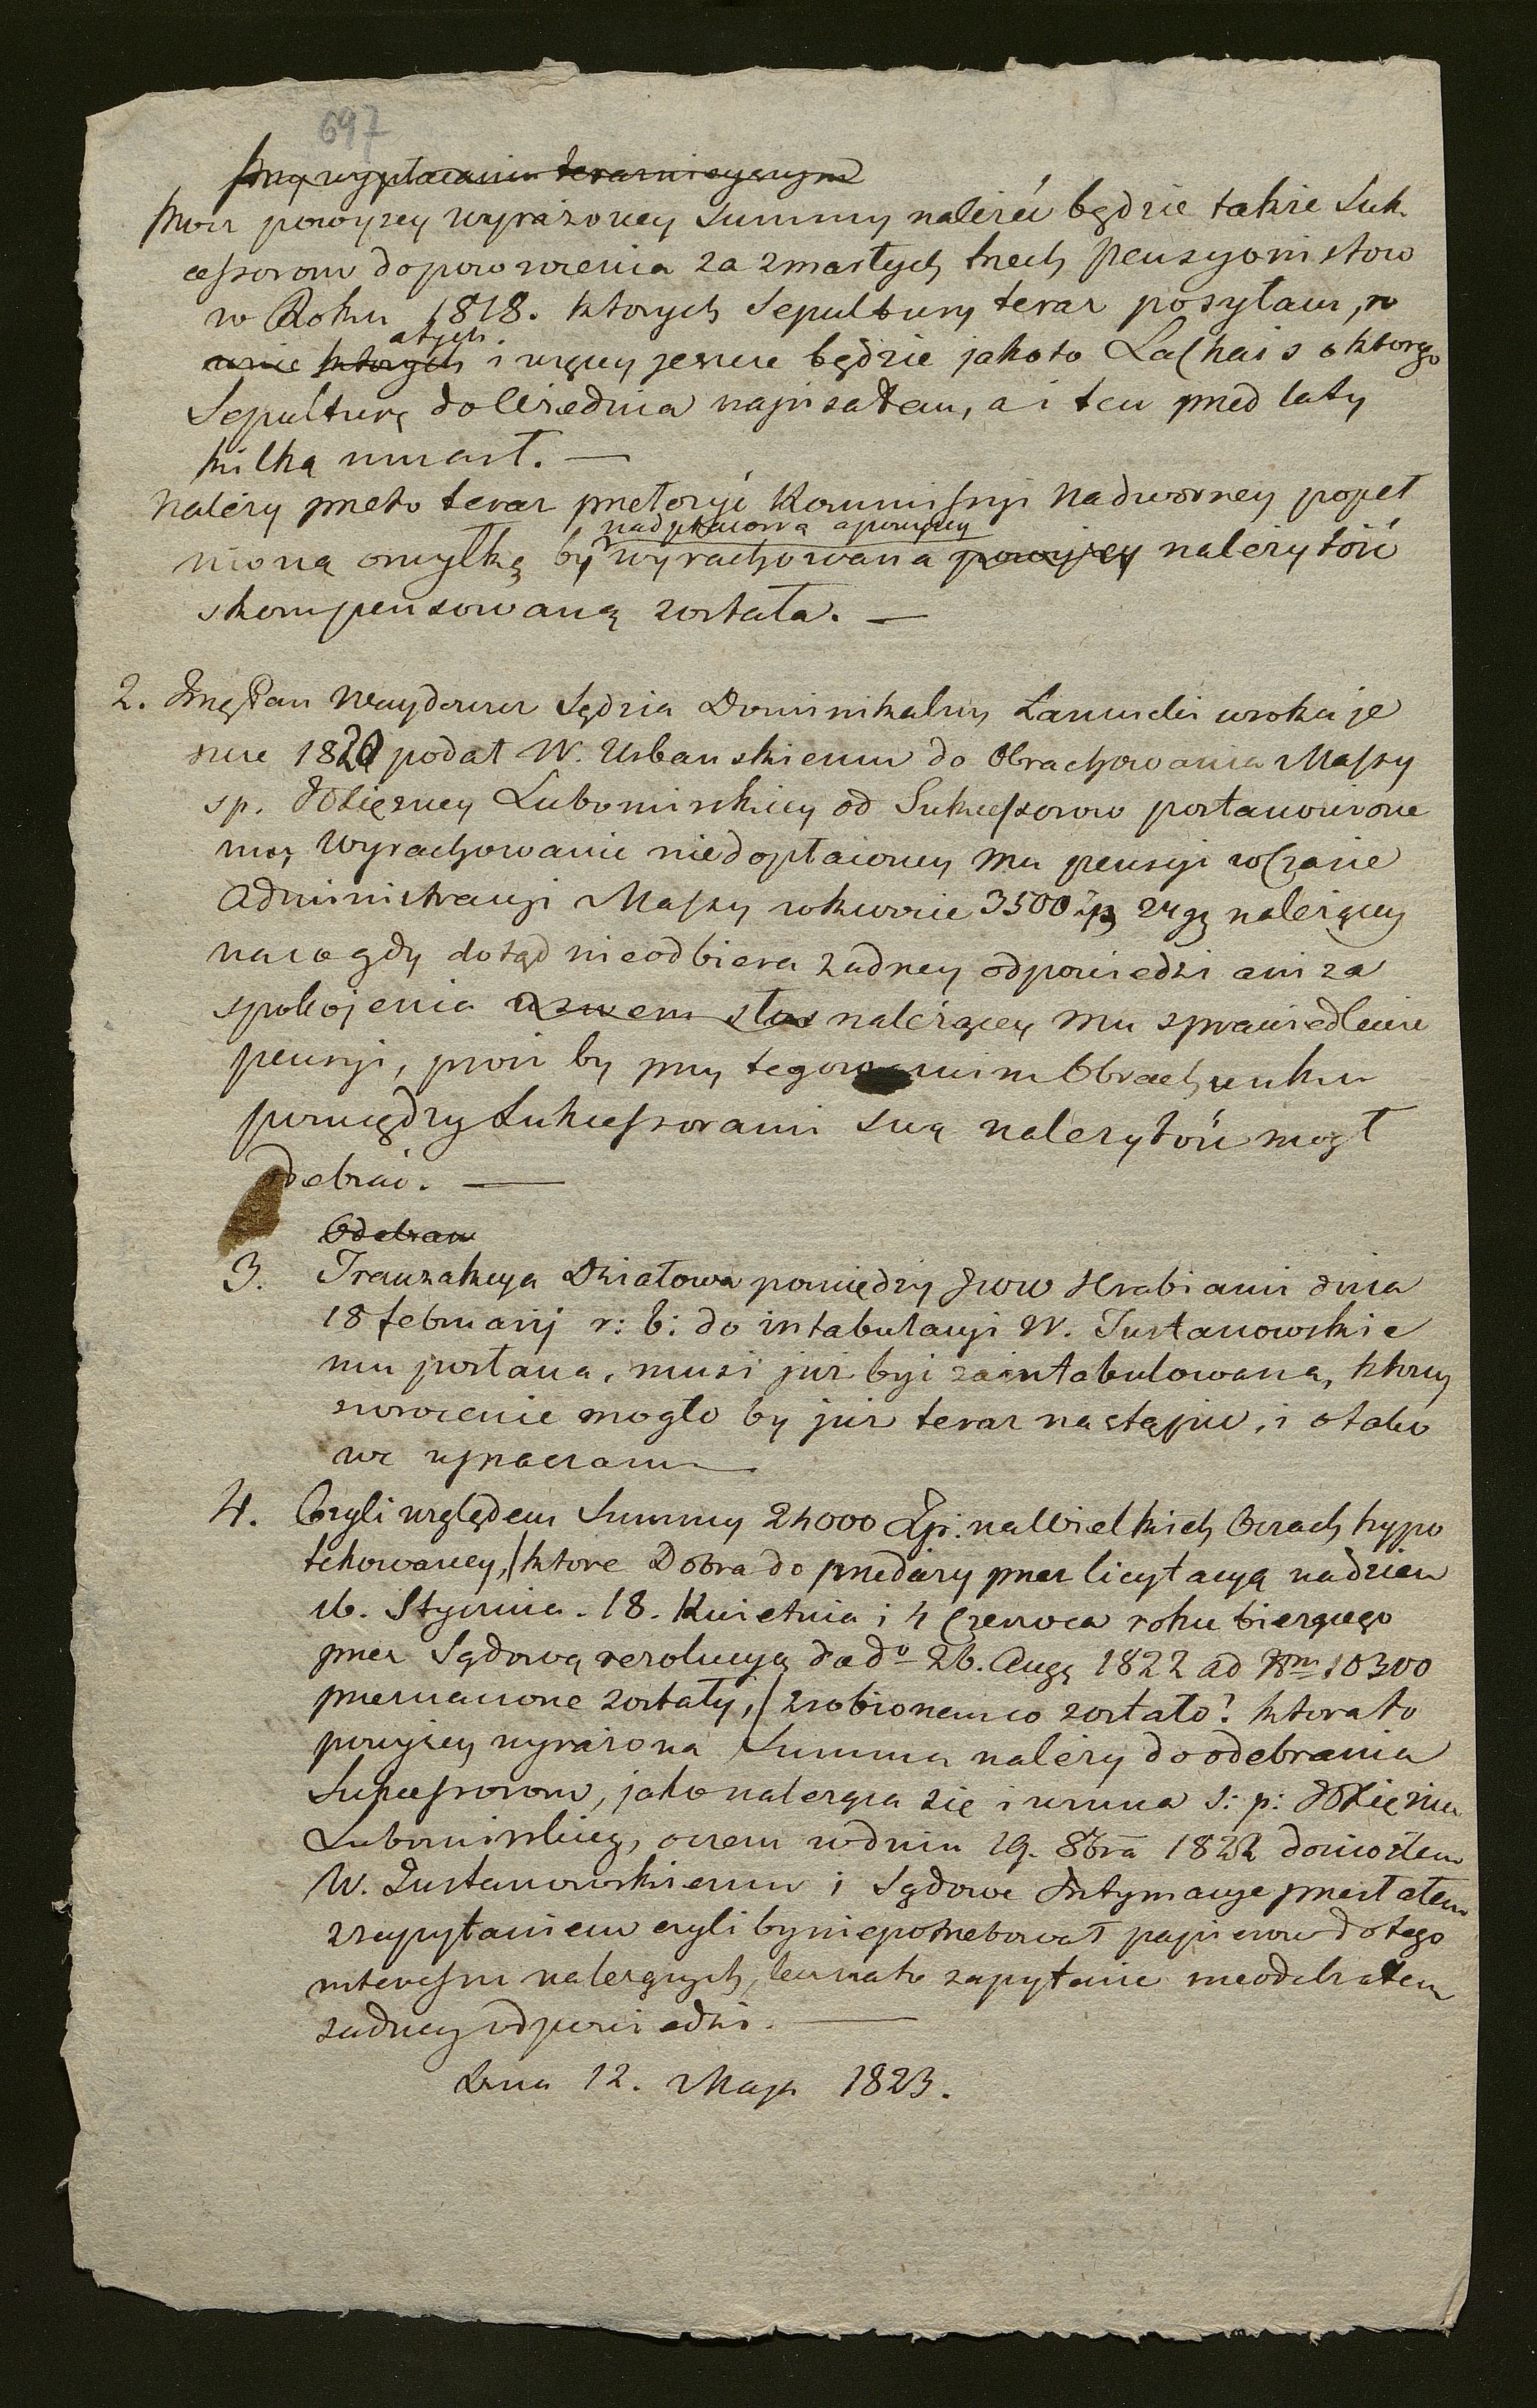 697
przy wypłacaniu teraznieyszym
Procz powyzey wyrażoney Summy należeć będzie także Suk
cessorom do powrocenia za zmarłych trzech Pensyonistow
w Roku 1818. ktorych Sepultury teraz posyłam, w
atych
ktorych i więcy jeszcze będzie jakoto Lachais o ktorego
Sepulturę do Leżachowa napisałem, a i ten przed laty
kilką umarł. —
Należy przeto teraz przełożyć Kommissyi Nadworney popeł
nadpłacona a powyzey
nioną omyłkę by wyrachowana powyzey należytość
skompensowaną została. —
2. Jmć Pan Sędzia Dominikalny Łancucki w roku je
szcze 1820 podał W. Urbanskiemu do Obrachowania Massy
sp. JO Xiężney Lubomirskiey od Sukcessorow postanowione
mu, Wyrachowanie niedopłaconey mu pensyi w czasie
Administracyi Massy w kwocie 3500 należącey
na co gdy dotąd nieodbiera żadney odpowiedzi ani za
spokojenia należącey mu sprawiedliwie
pensyi, prosi by przy tegorocznim Obrachunku
pomiędzy Sukcessorami swą należytość mogł
odebrać. —
Odebraw
3. Tranzakcya Działowa pomiędzy JWW Hrabiami dnia
18 februarij r: b: do intabulacyi W. Tustanowskie
mu posłana, musi już być zaintabulowaną, ktorey
zwrocenie mogło by już teraz nastąpić, i o takowe
upraszam —
4. Czyli względem Summy 24000 Złp: na Wielkich Oczach hypo
tekowaney, / ktore Dobra do przedaży przez licytacyą na dzien
16. Stycznia. 18. Kwietnia i 4 Czerwca roku bieżącego
przez Sądową rezolucyą de do 26. Augę 1822 ad Nm 10300
przeznaczone zostały, / zrobionem co zostało? ktora to
powyzey wyrażona Summa należy do odebrania
Sukcessorom, jako należąca się s: p: JO Xiężnie
Lubomirskiey, oczem w dniu 19. 8bra 1822 doniosłem
W. Tustanowskiemu i Sądowe Intymacye przesłałem
z zapytaniem czyli by niepotrzebował papierow do tego
interessu należących, lecz na to zapytanie nieodebrałem
żadney odpowiedzi. —
Dnia 12. Maja 1823.